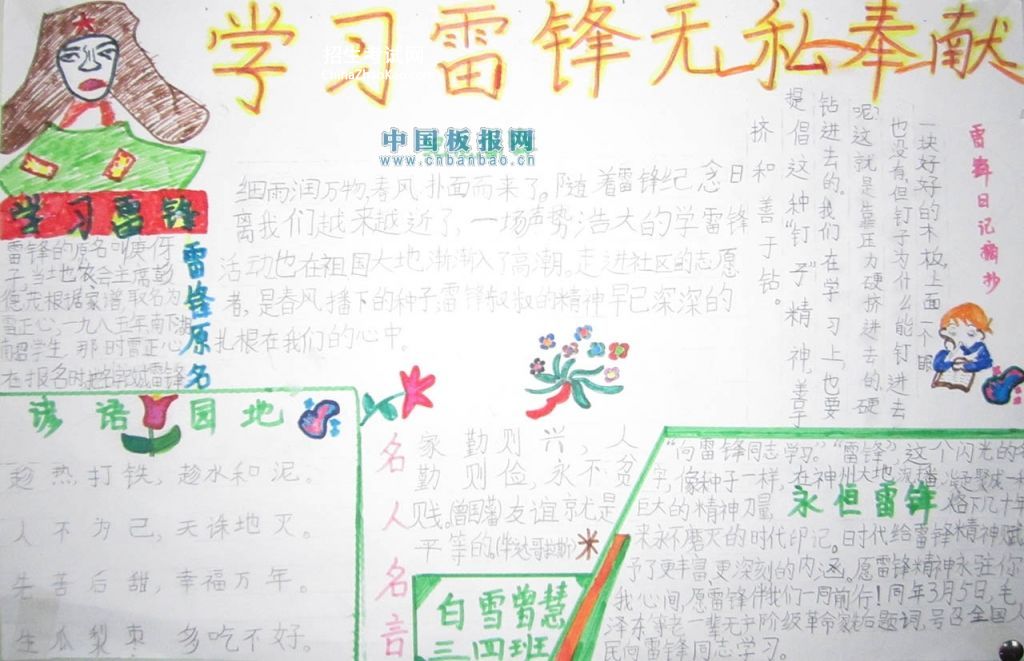 学习雷锋无私奉献
招生考试网
ChinaZhaoKao.com
中国板报网
www.cnbanbao.cn
学习雷锋
雷锋原名
雷锋的原名叫庚伢
子,当地农会主席彭
德茂根据家谱取名为
雷正心,一九八五年,南下湖
南招学生 那时雷正心
在报名时把名字改成雷锋
细雨润万物,春风扑面而来了。随着雷锋纪念日
离我们越来越近了,一场声势浩大的学雷锋
活动也在祖国大地渐渐入了高潮。走进社区的志愿
者,是春风播下的种子,雷锋叔叔的精神早已深深的
扎根在我们的心中。
雷锋日记摘抄
一块好好的木板,上面一个眼
也没有,但钉子为什么能钉进去
呢?这就是靠压力硬挤进去的,硬
钻进去的。我们在学习上,也要
提倡这种“钉子”精神,善于
挤和善于钻。
谚语园地
趁热打铁,趁水和泥。
人不为己,天诛地灭。
先苦后甜,幸福万年。
生瓜梨枣 多吃不好。
名人名言
家勤则兴,人
勤则俭,永不贫
贱。曾国藩友谊就是
平等的。
白雪曾慧
三.四班
永恒雷锋
“向雷锋同志学习。”“雷锋”,这个闪光的
字,像种子一样,在神州大地流播凝聚成一
巨大的精神力量 烙下几十年
来永不磨灭的时代印记。时代给雷锋精神赋
予了更丰富更深刻的内涵。愿雷锋精神永驻你
我心间,愿雷锋伴我们一同前行!同年3月5日,毛
泽东等老一辈无产阶级革命家题词,号召全国人
民向雷锋同志学习。